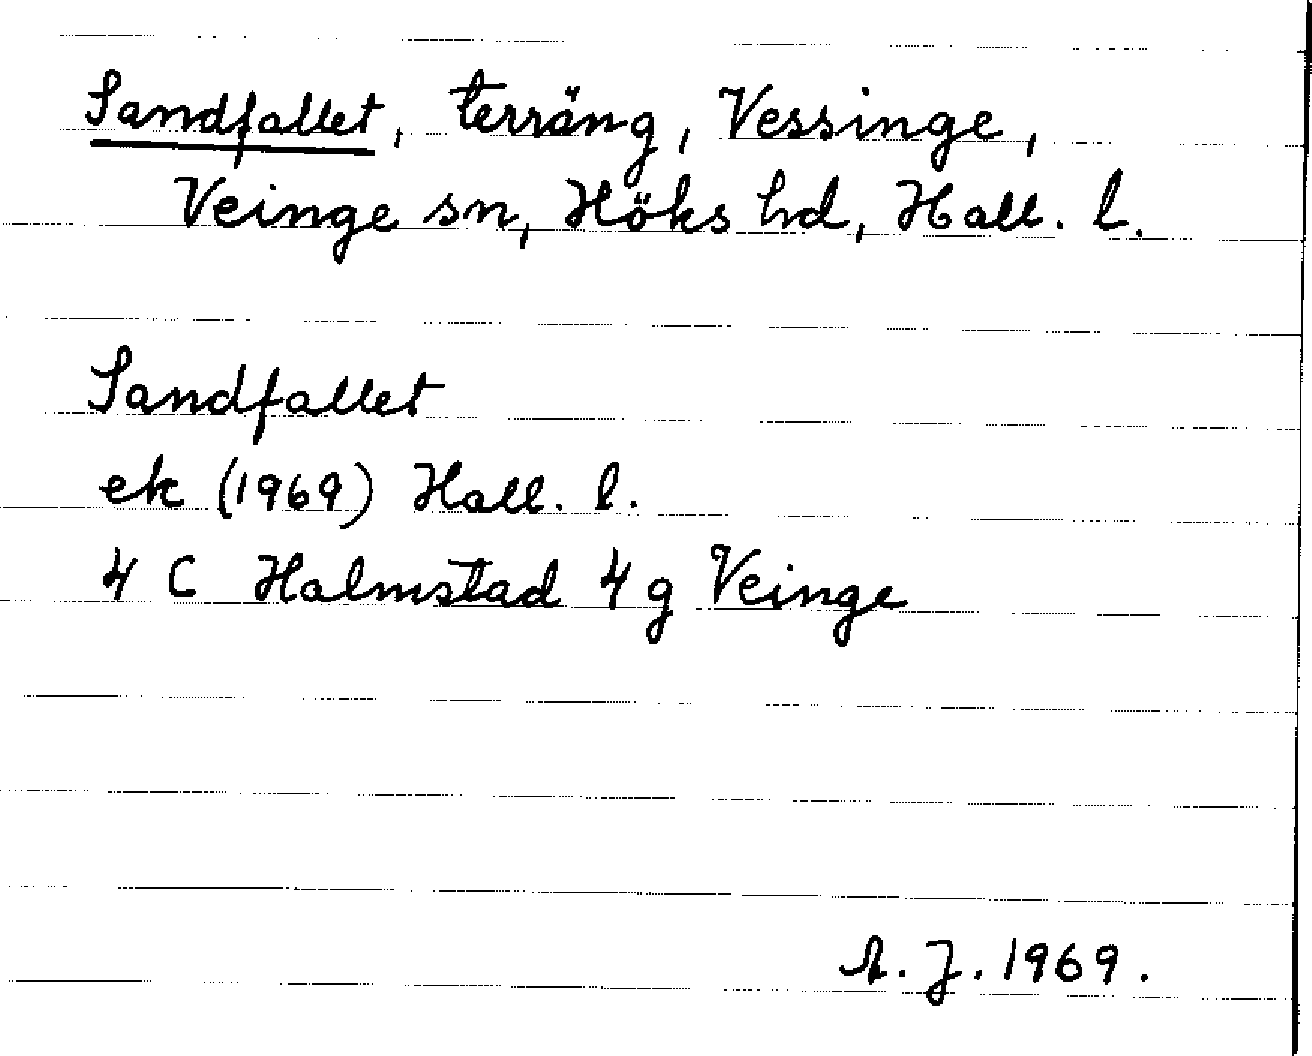 Sandfallet, terräng, Vessinge,
Veinge sn, Höks hd, Hall. l.
Sandfallet
ek (1969) Hall. l.
4 C Halmstad 4 g Veinge
A. J. 1969.